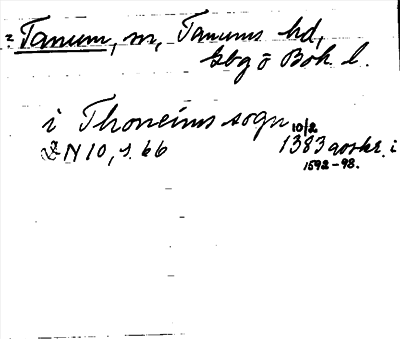 Tanum, m, Tanums hd,
kbg ö Boh. l.
i Thoneims sogn
DN 10, s. 66 10/2 1383 avskr. i
1592-98.